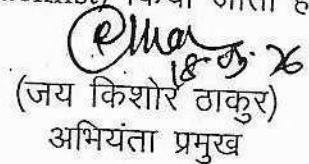 किया जाता है
18.05.26
(जय किशोर ठाकुर)
अभियंता प्रमुख